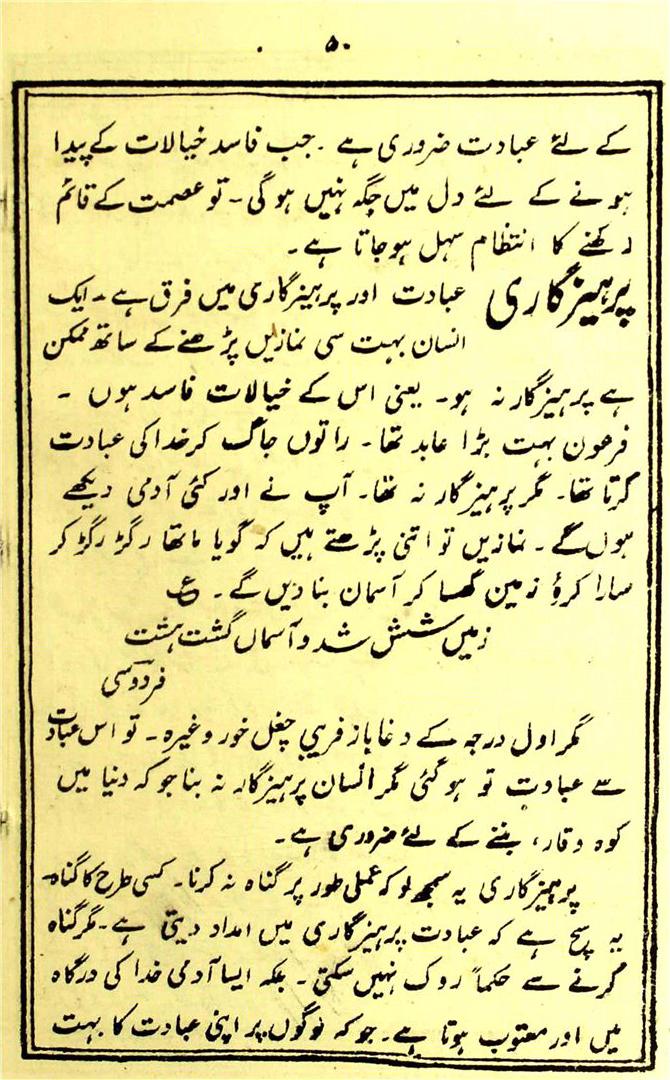 ۵۰
کے لئے عبادت ضروری ہے ۔ جب فاسد خیالات کے پیدا
ہونے کے لئے دل میں جگہ نہیں ہو گی ۔ تو عصمت کے قائم
رکھنے کا انتظام سہل ہو جاتا ہے ۔
پرہیزگاری عبادت اور پرہیزگاری میں فرق ہے ۔ ایک
انسان بہت سی نمازیں پڑھنے کے ساتھ ممکن
ہے پرہیزگار نہ ہو ۔ یعنی اس کے خیالات فاسد ہوں ۔
فرعون بہت بڑا عابد تھا ۔ راتوں جاگ کر خدا کی عبادت
کرتا تھا ۔ مگر پرہیزگار نہ تھا ۔ آپ نے اور کئی آدمی دیکھے
ہوں گے ۔ نمازیں تو اتنی پڑھتے ہیں کہ گویا ماتھا رگڑ رگڑ کر
سارا کرۂ زمین گھسا کر آسمان بنا دیں گے ۔ ع
زمیں شش شد و آسماں گشت ہشت
فردوسی
مگر اول درجہ کے دغا باز فریبی چغل خور وغیرہ ۔ تو اس عبادت
سے عبادت تو ہو گئی مگر انسان پرہیزگار نہ بنا جو کہ دنیا میں
کوہ وقار، بننے کے لئے ضروری ہے ۔
پرہیزگاری یہ سمجھ لو کہ عملی طور پر گناہ نہ کرنا ۔ کسی طرح کا گناہ ۔
یہ سچ ہے کہ عبادت پرہیزگاری میں امداد دیتی ہے ۔ مگر گناہ
کرنے سے حکماً روک نہیں سکتی ۔ بلکہ ایسا آدمی خدا کی درگاہ
میں اور معتوب ہوتا ہے ۔ جو کہ لوگوں پر اپنی عبادت کا بہت